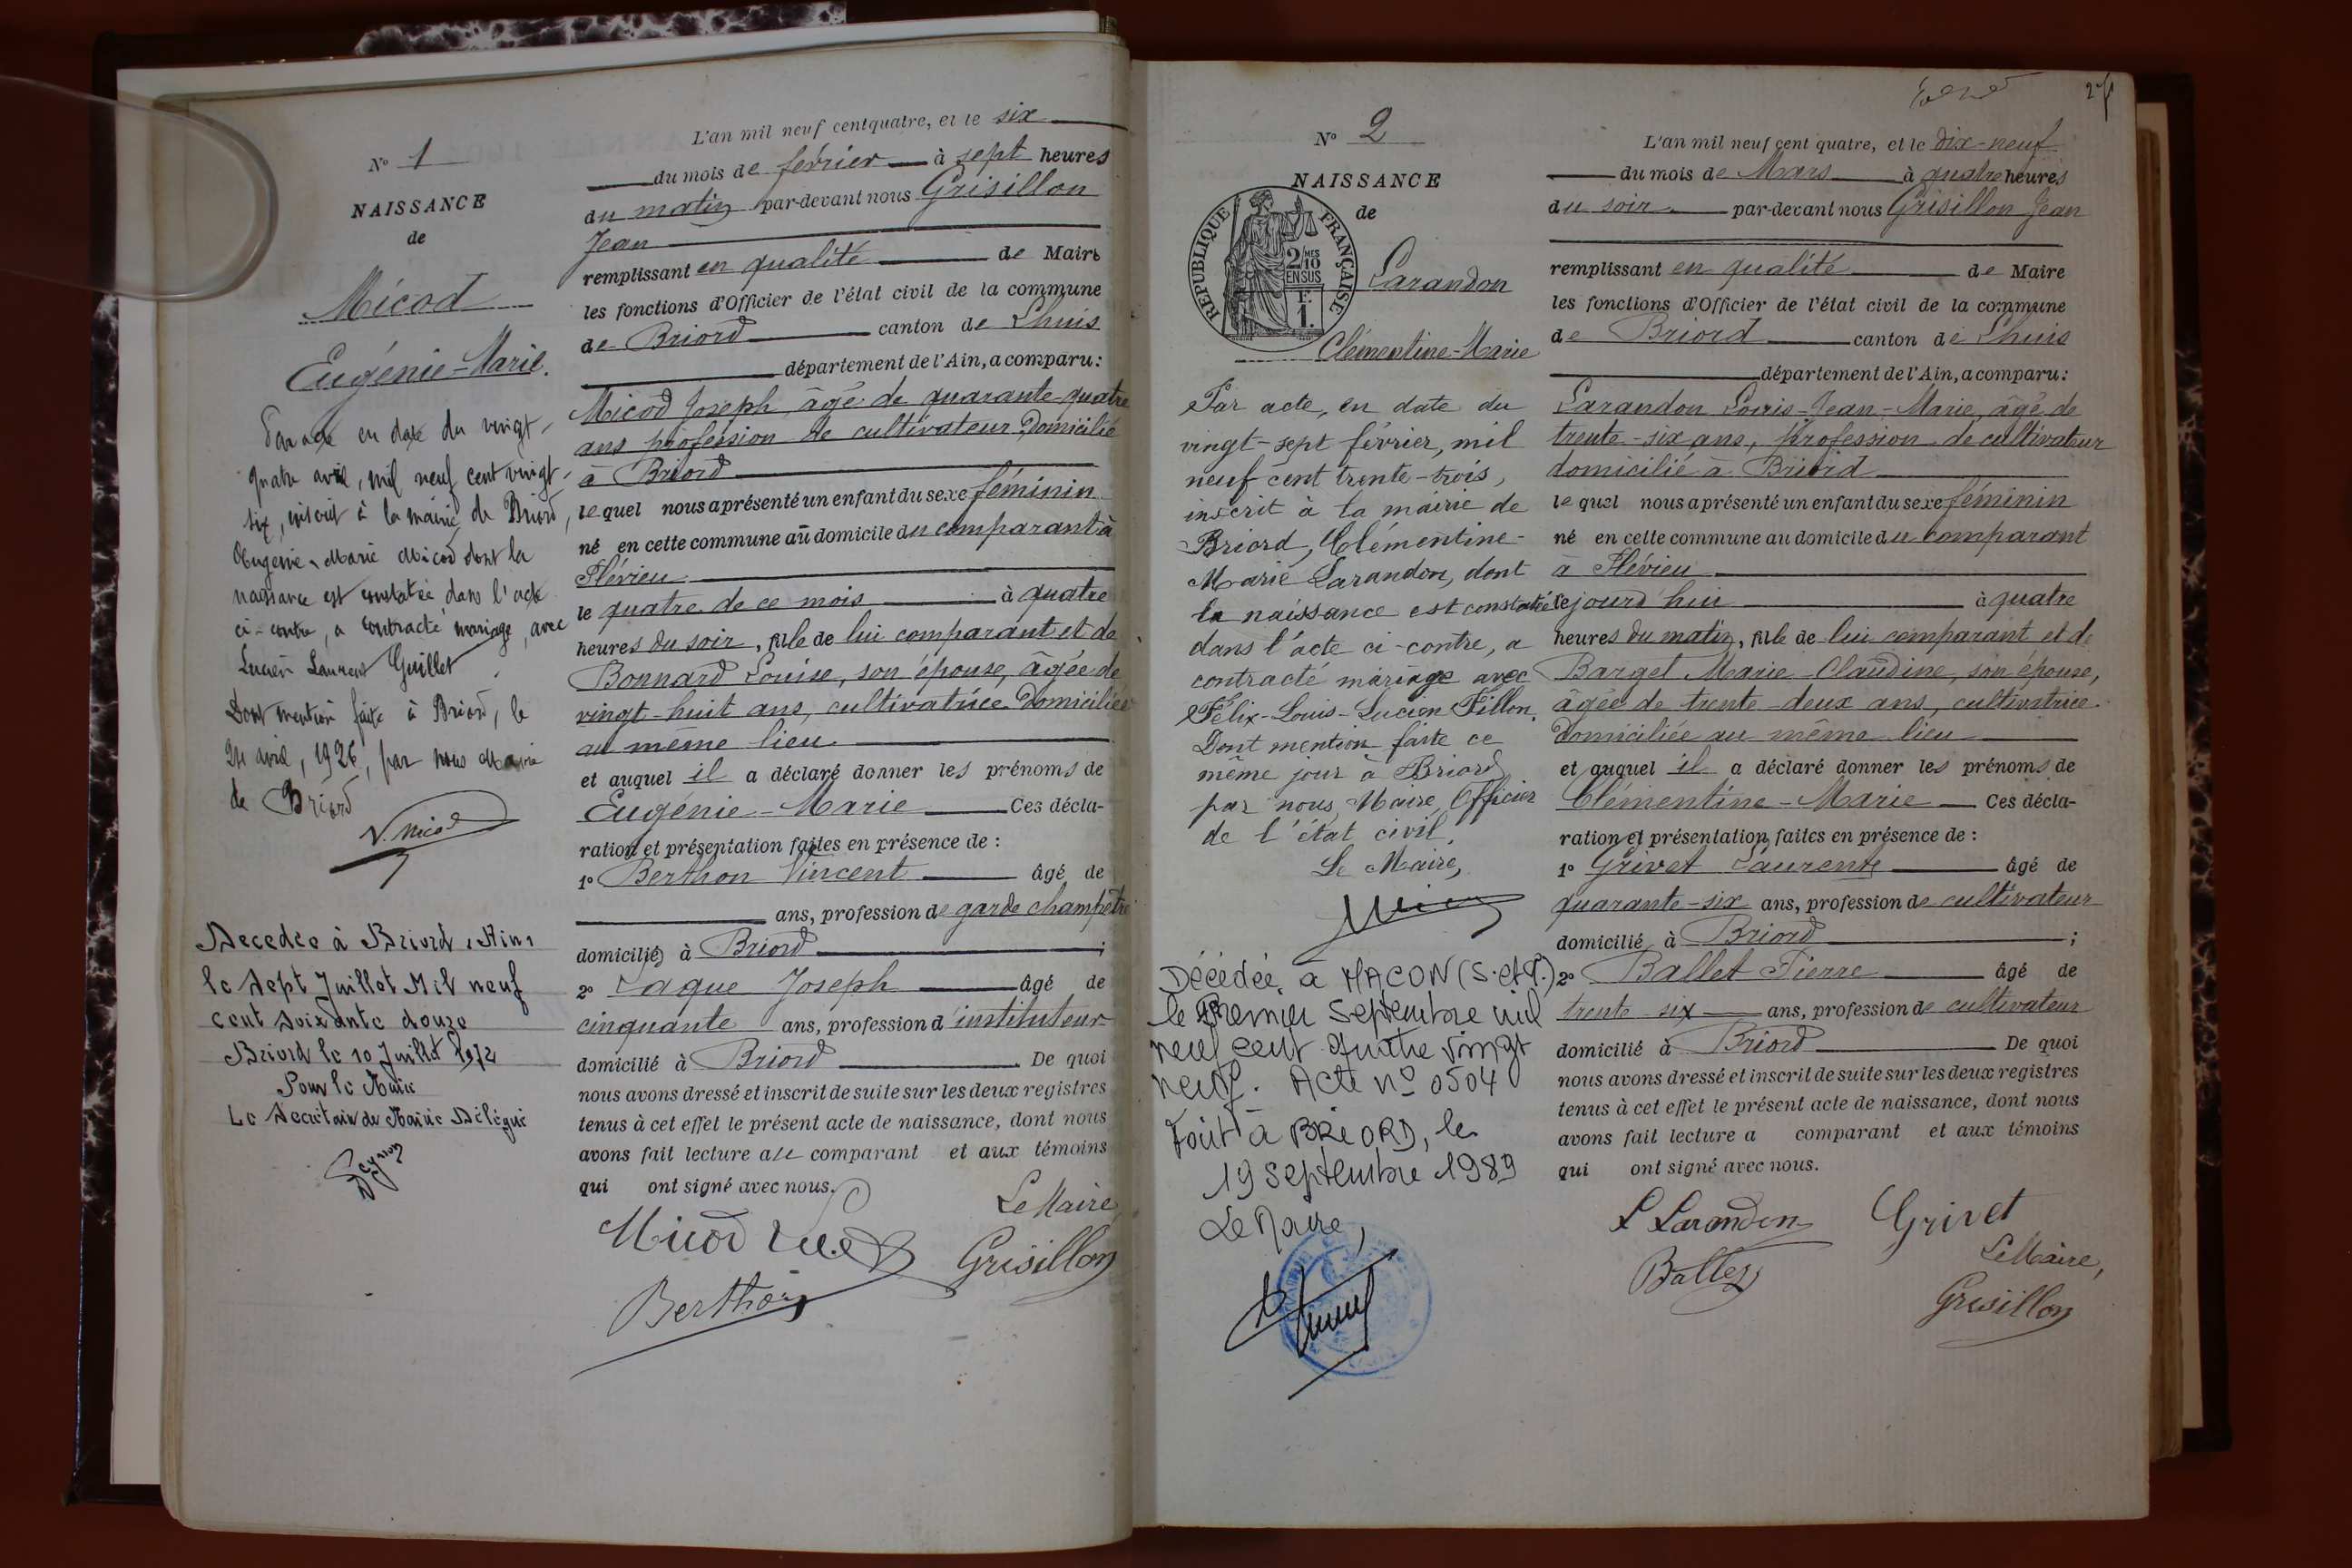 N° 1
NAISSANCE
de
Micod
Eugénie-Marie.
Par acte en date du vingt-
quatre avril, mil neuf cent vingt-
six, inscrit à la mairie de Briord,
Eugénie-Marie Micod dont la
naissance est constatée dans l'acte
ci-contre, a contracté mariage, avec
Lucien Laurent Guillet.
Dont mention faite à Briord, le
24 avril, 1926, par nous Maire
de Briord
V. Micod
Decedée à Briord (Ain)
le Sept Juillet Mil neuf
cent soixante douze
Briord le 10 Juillet 1972
Pour le Maire
Le Secrétaire de Mairie Délégué
L'an mil neuf cent quatre, et le six
du mois de février à sept heures
du matin par-devant nous Grisillon
Jean
remplissant en qualité de Maire
les fonctions d'Officier de l'état civil de la commune
de Briord canton de Lhuis
département de l'Ain, a comparu:
Micod Joseph, âgé de quarante-quatre
ans profession de cultivateur domicilié
à Briord
lequel nous a présenté un enfant du sexe féminin
né en cette commune au domicile du comparant à
Flévieu
le quatre de ce mois à quatre
heures du soir, fille de lui comparant et de
Bonnard Louise, son épouse, âgée de
vingt-huit ans, cultivatrice domiciliée
au même lieu.
et auquel il a déclaré donner les prénoms de
Eugénie-Marie Ces décla-
ration et présentation faites en présence de :
1° Berthon Vincent âgé de
ans, profession de garde champêtre
domicilié à Briord ;
2° Jaque Joseph âgé de
cinquante ans, profession d'instituteur
domicilié à Briord . De quoi
nous avons dressé et inscrit de suite sur les deux registres
tenus à cet effet le présent acte de naissance, dont nous
avons fait lecture au comparant et aux témoins
qui ont signé avec nous.
Le Maire,
Micod
Grisillon
Berthon
N° 2
NAISSANCE
de
REPUBLIQUE FRANÇAISE
2/10 MES
EN SUS
1 F.
1.
Larandon
Clémentine-Marie
Par acte, en date du
vingt-sept février, mil
neuf cent trente-trois,
inscrit à la mairie de
Briord, Clémentine-
Marie Larandon, dont
la naissance est constatée
dans l'acte ci-contre, a
contracté mariage avec
Félix-Louis-Lucien Fillon.
Dont mention faite ce
même jour à Briord
par nous, Maire, Officier
de l'état civil.
Le Maire,
Décédée à MACON (S.et L.)
le Premier Septembre mil
neuf cent quatre vingt
neuf. Acte n° 0504
Fait à BRIORD, le
19 Septembre 1989
Le Maire,
L'an mil neuf cent quatre, et le dix-neuf
du mois de Mars à quatre heures
du soir par-devant nous Grisillon Jean
remplissant en qualité de Maire
les fonctions d'Officier de l'état civil de la commune
de Briord canton de Lhuis
département de l'Ain, a comparu:
Larandon Louis-Jean-Marie, âgé de
trente-six ans, profession de cultivateur
domicilié à Briord
lequel nous a présenté un enfant du sexe féminin
né en cette commune au domicile du comparant
à Flévieu
le jourd'hui à quatre
heures du matin, fille de lui comparant et de
Barget Marie-Claudine, son épouse,
âgée de trente-deux ans, cultivatrice
domiciliée au même lieu
et auquel il a déclaré donner les prénoms de
Clémentine-Marie Ces décla-
ration et présentation faites en présence de :
1° Grivet Laurent âgé de
quarante-six ans, profession de cultivateur
domicilié à Briord ;
2° Ballet Pierre âgé de
trente-six ans, profession de cultivateur
domicilié à Briord De quoi
nous avons dressé et inscrit de suite sur les deux registres
tenus à cet effet le présent acte de naissance, dont nous
avons fait lecture a comparant et aux témoins
qui ont signé avec nous.
L Larandon Grivet
Le Maire,
Ballet
Grisillon